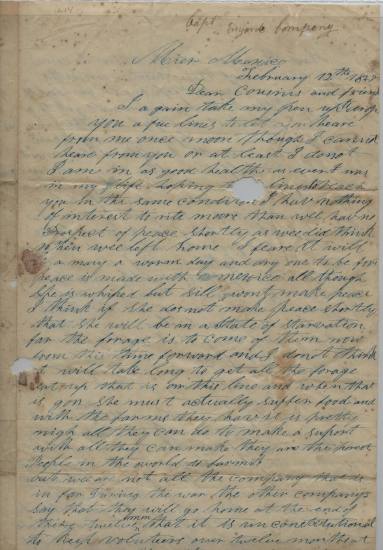 Capt company
Mier Mexico
February 12th 184
Dear Cousins and friend
I again take my pen up to drop
you a fue lines to let you heare
from me once moore though I cannot
heare from you or at least I do not
I am in as good health as ever I was
in my life hoping these lines
you in the same condition I hav nothing
of interest to rite moore than wee hav no
prospect of peace shortly as wee did think
when wee left home I feare it will
a many a warm day and any one to be for
peace is made with mexico all though
she is whiped but still wont make peace
I think if she dos not make peace shortly
that she will be in a state of starvation
for the forage is to come of them now
from this time forward and I do not think
it will take long to get all the forage
that is on this line and when that
is gon she must actually suffer food and
with the farms they hav it is pretty
nigh all they can do to make a suport
with all they can make they are the poorest
people in the world to farm
wee are not all the company that is
in for during the war the other companys
say that they will go home at the end of
their twelve months that it is unconstitutional
to keep volunteers over twelve months at